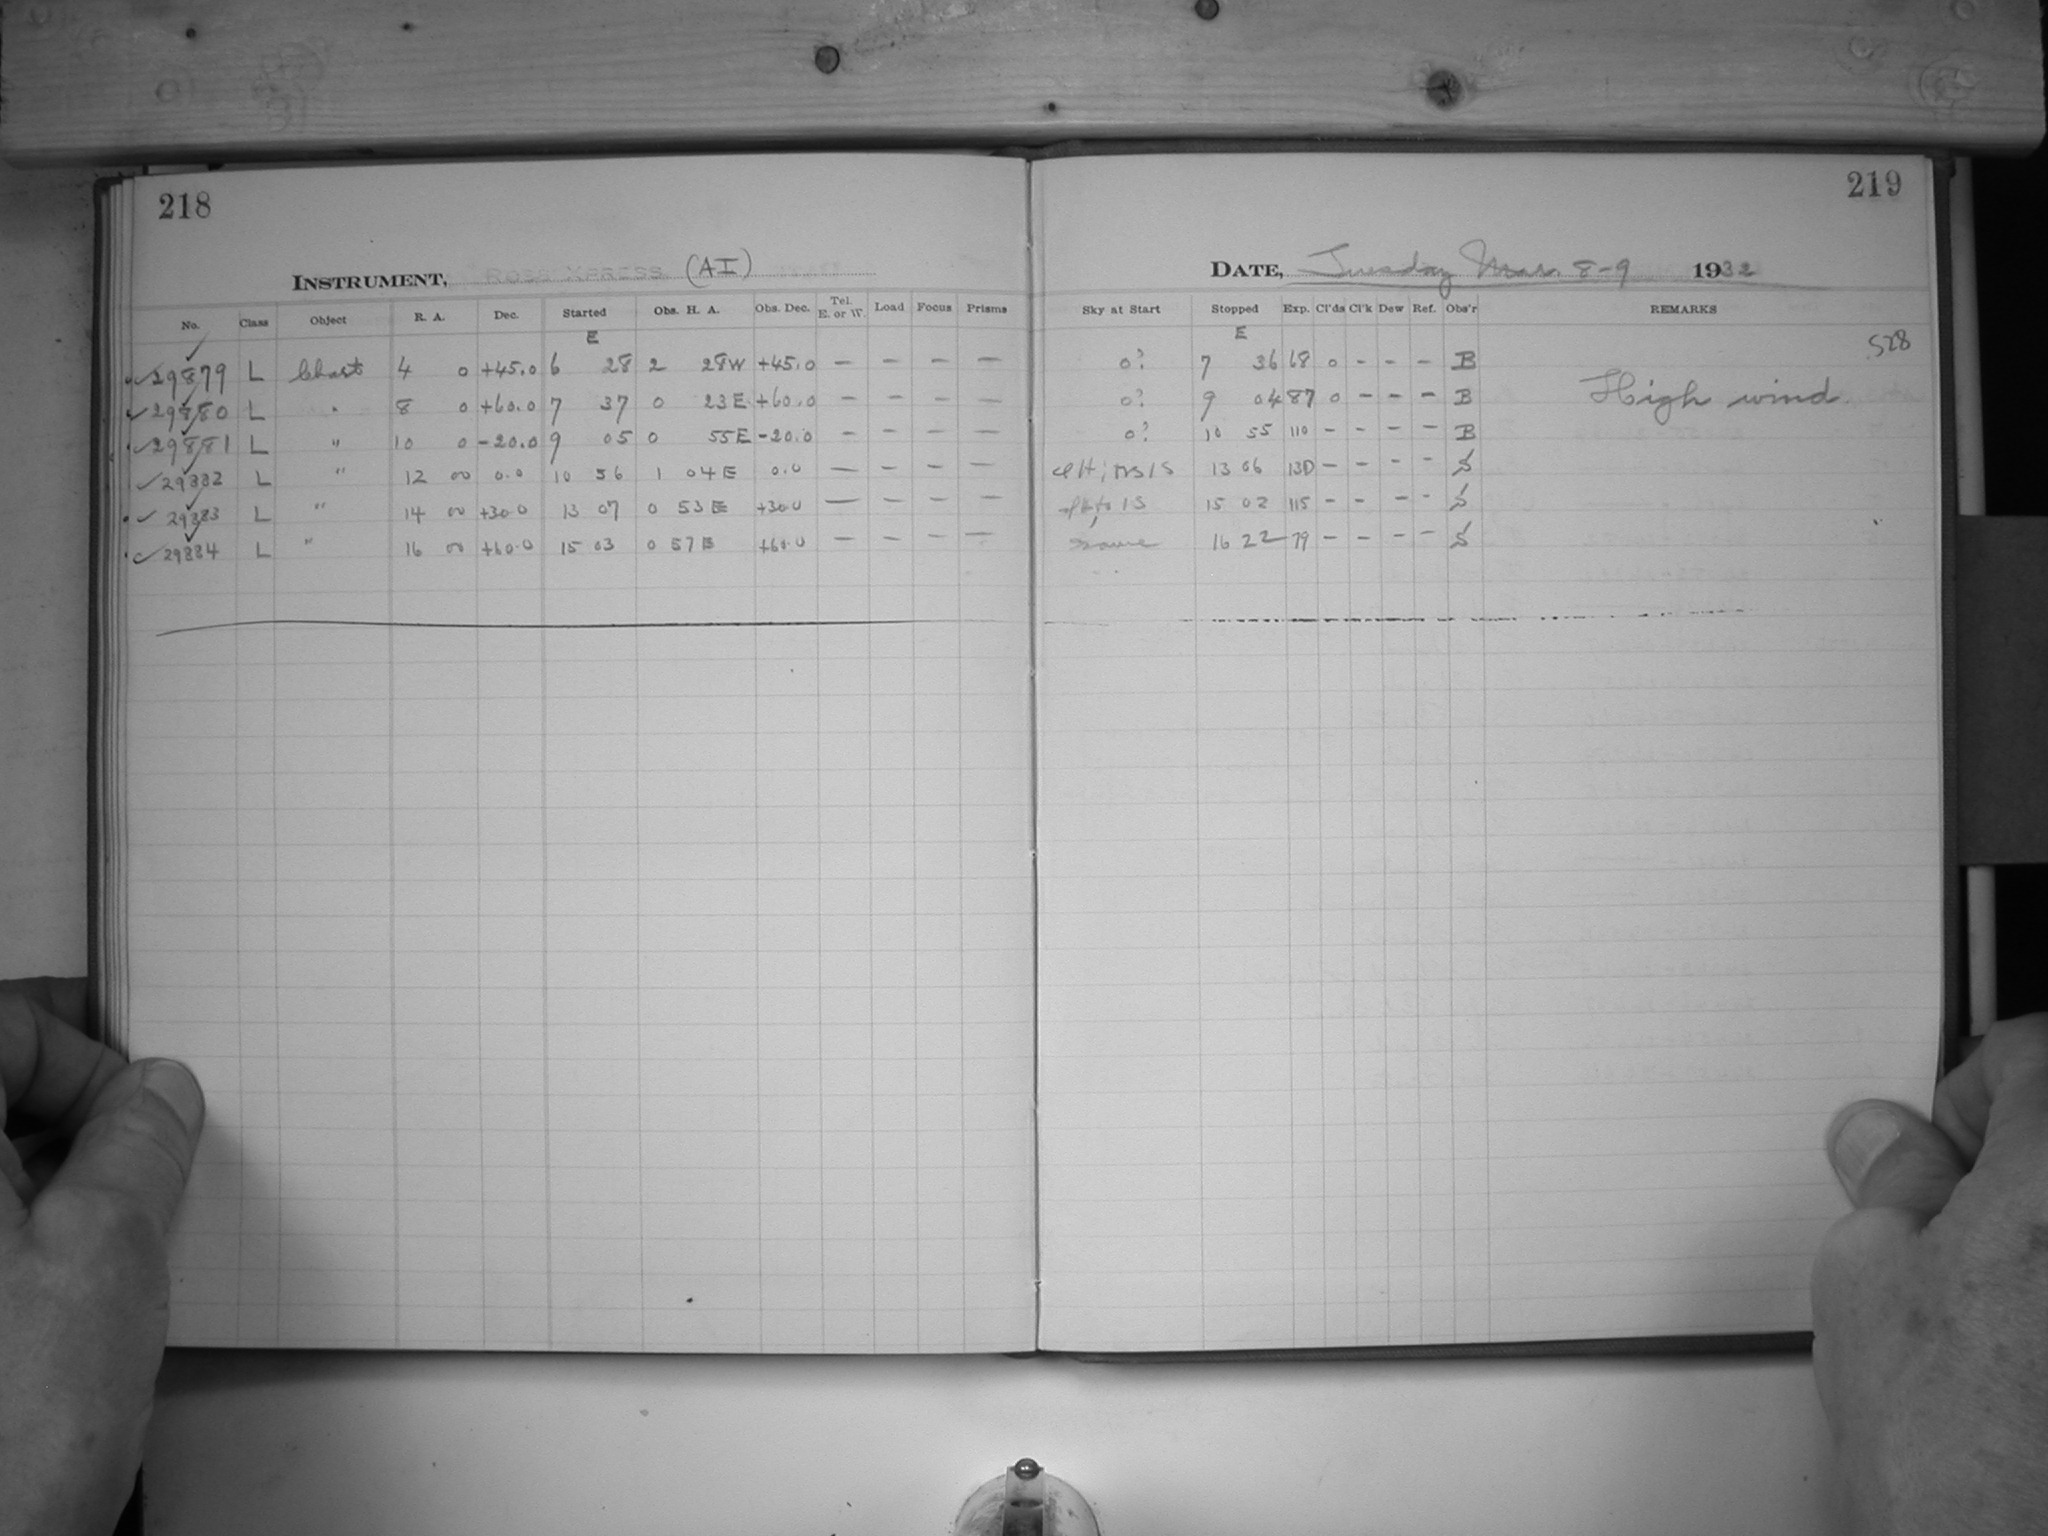 218
INSTRUMENT, ROSS XPRESS (AI)
No. Class Object R. A. Dec. Started Obs. H. A. Obs. Dec. Tel. E. or W. Load Focus Prisms
E
29879 L Chart 4 0 +45.0 6 28 2 28W +45.0 — — — —
29880 L " 8 0 +60.0 7 37 0 23E +60.0 — — — —
29881 L " 10 0 -20.0 9 05 0 55E -20.0 — — — —
29882 L " 12 00 0.0 10 56 1 04E 0.0 — — — —
29883 L " 14 00 +30.0 13 07 0 53E +30.0 — — — —
29884 L " 16 00 +60.0 15 03 0 57E +60.0 — — — —
219
DATE, Tuesday Mar. 8-9 1932
Sky at Start Stopped Exp. Cl'ds Cl'k Dew Ref. Obs'r REMARKS
E
528
0? 7 36 68 0 - - - B
0? 9 04 87 0 - - - B High wind.
0? 10 55 110 - - - - B
13 06 130 - - - - S
15 02 115 - - - - S
same 16 22 79 - - - - S